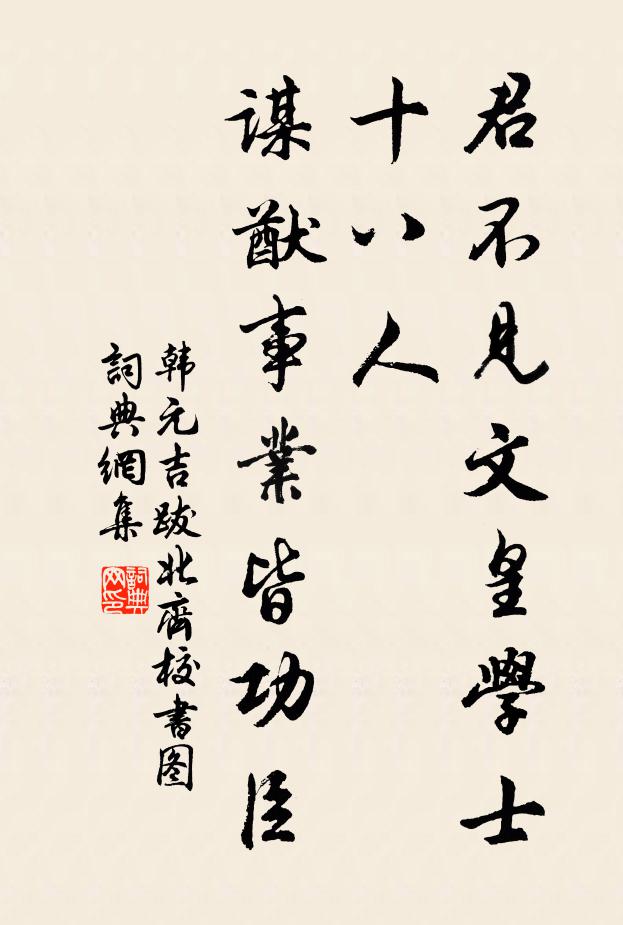 君不見文皇學士
十八人
謀猷事業皆功臣
韩元吉跋北齊校書图
詞典網集
詞典網印